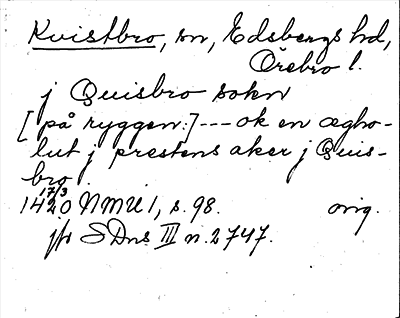 Kvistbro, sn, Edsbergs hd,
Örebro l.
j Quisbro sokn
[på ryggen:] --- ok en ægho-
lut j prestens aker j Quis-
bro
17/3
1420 NMU 1, s. 98. orig.
jfr SDns III n. 2747.